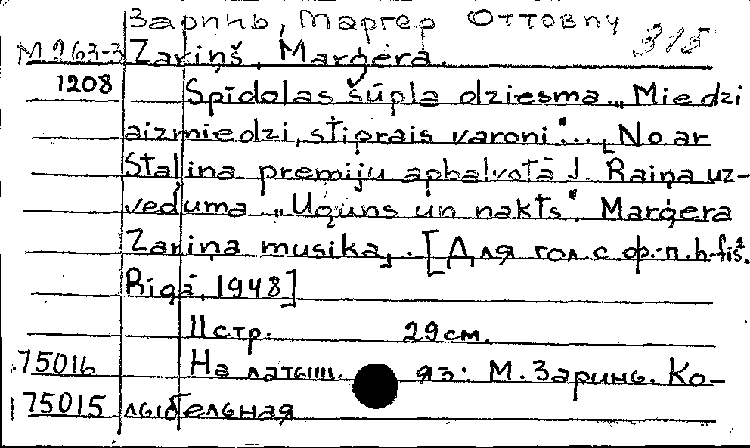 Заринь, Маргер Оттович 315
М 963-3 Zariņš, Marģera.
1208 Spīdolas šūpļa dziesma „Miedzi
aizmiedzi, stiprais varoni"... [No ar
Staļina premiju apbalvotā J. Raiņa uz-
veduma „Uguns un nakts". Marģera
Zariņa musika]. [Для гол. с ф.-п. h-fis².
Rīgā, 1948]
11 стр. 29 см.
75016 На латыш. яз: М. Заринь. Ко-
75015 лыбельная